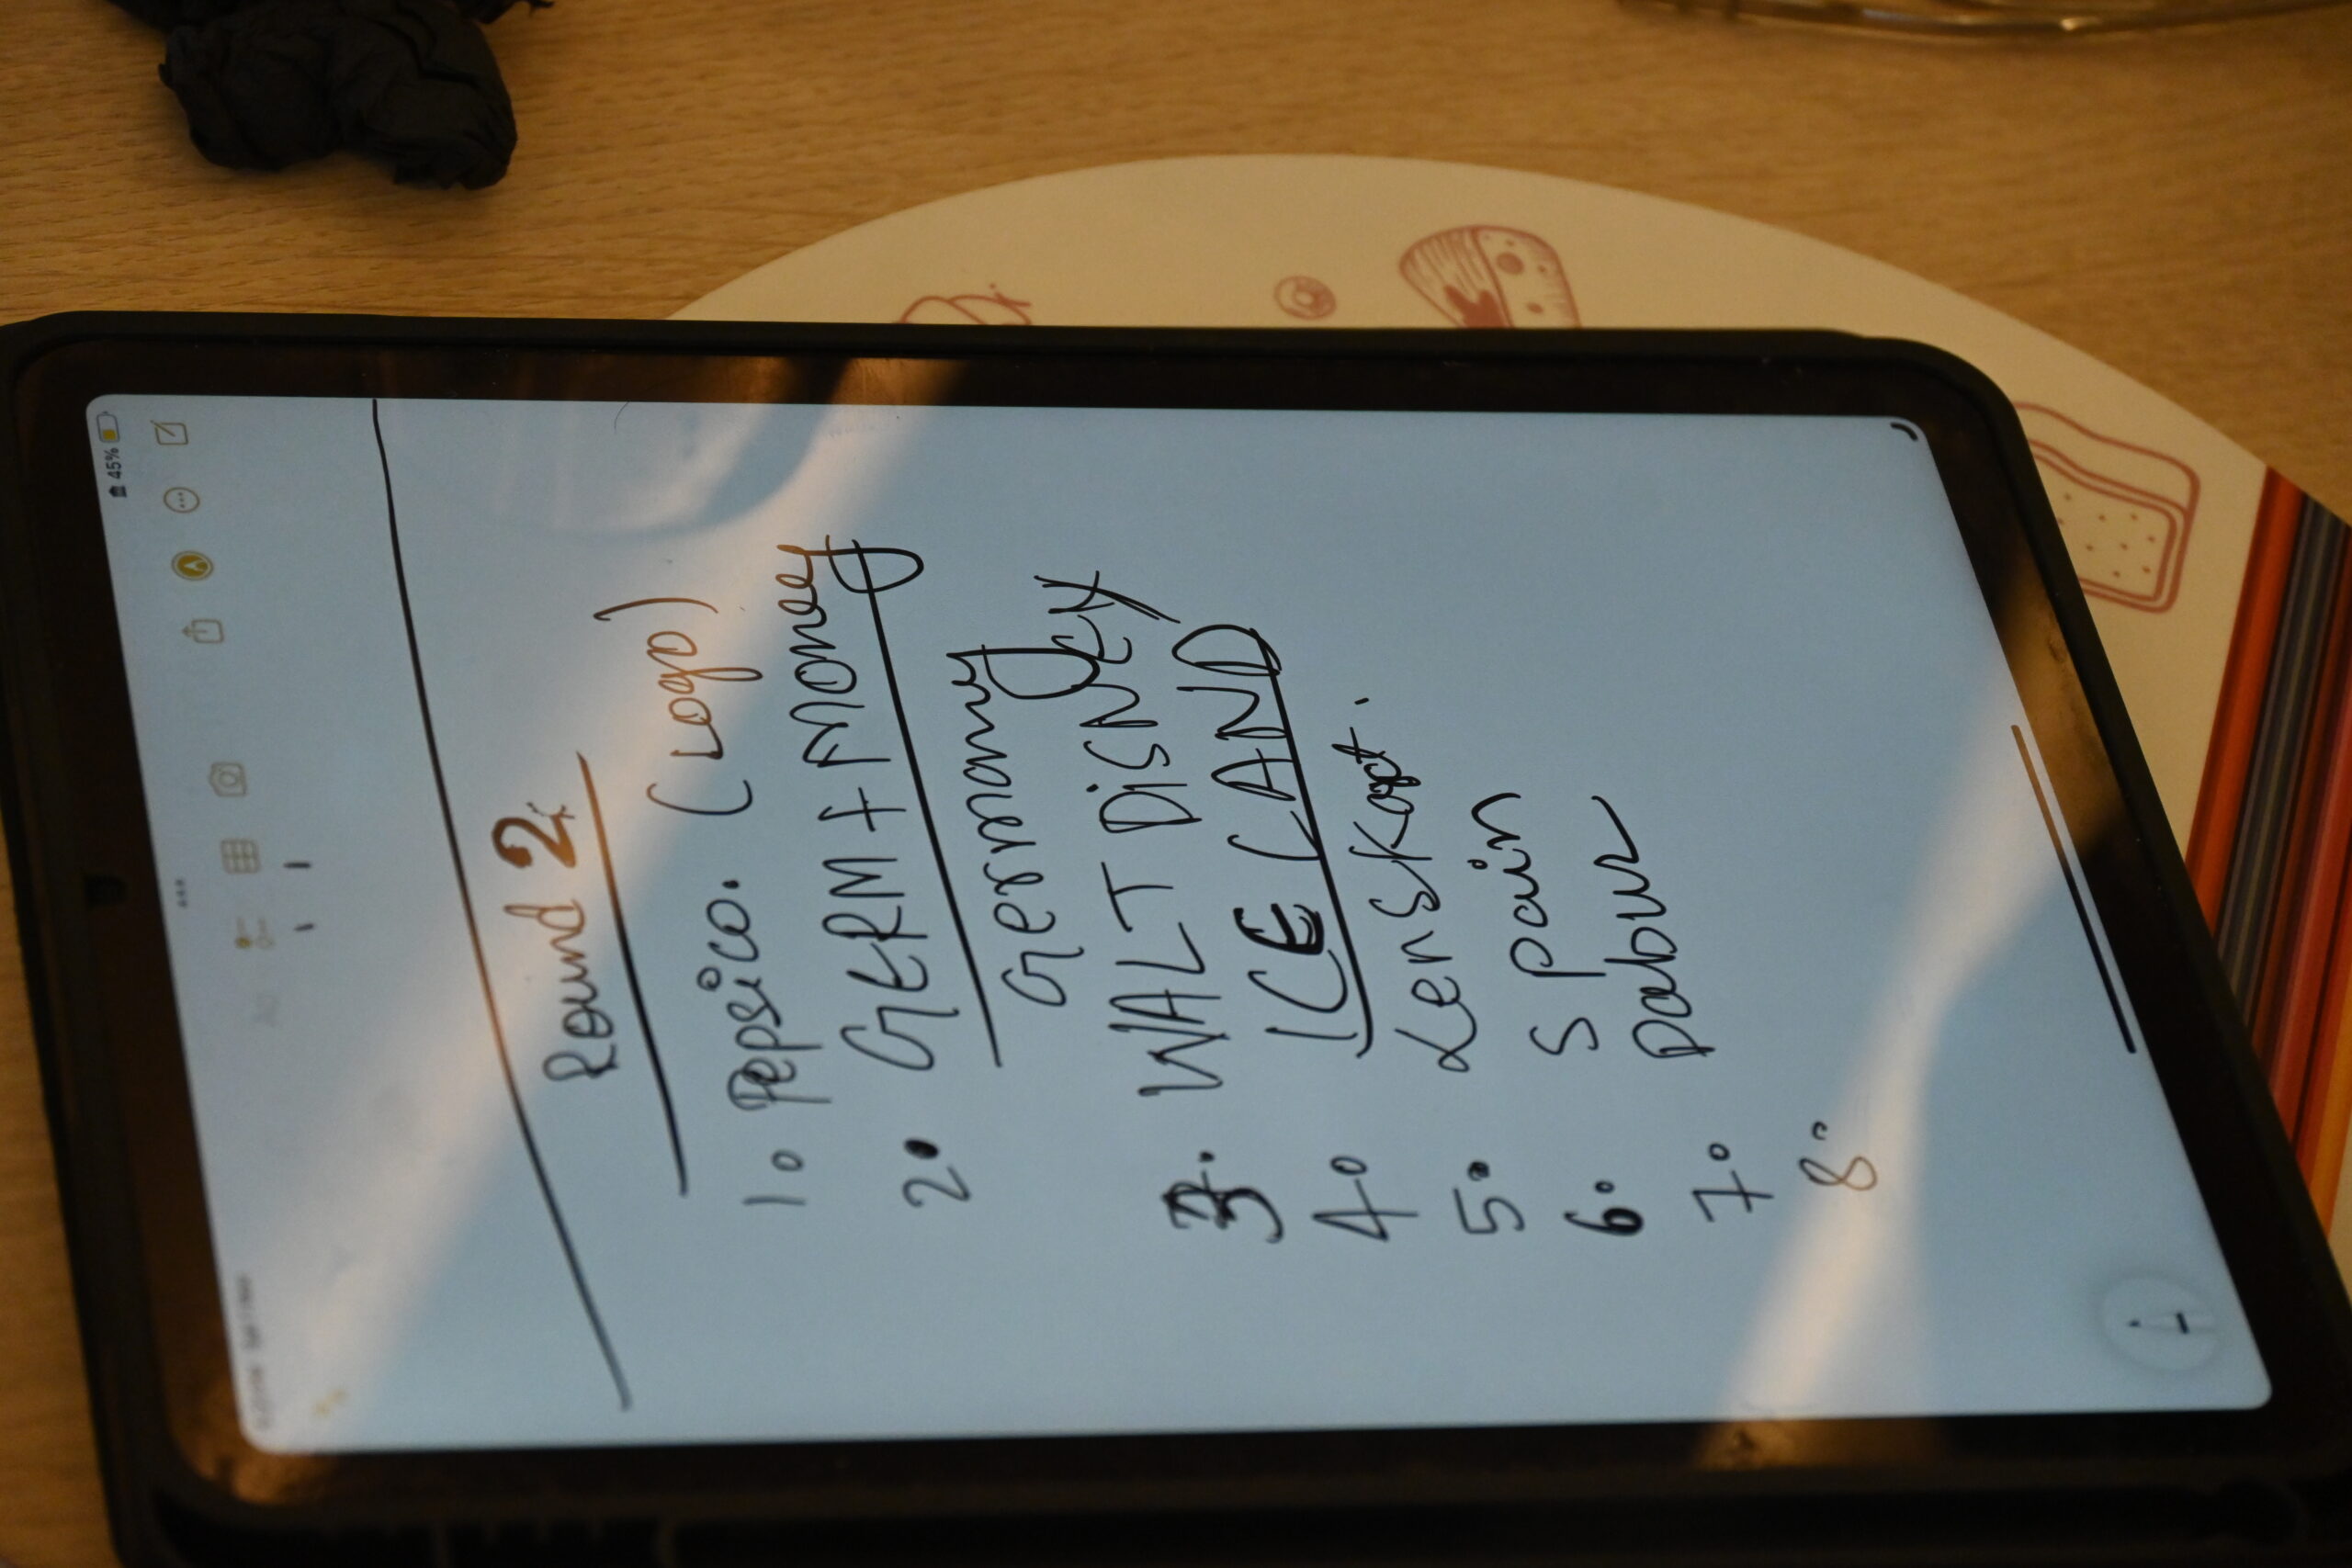 45%
Round 2
1. Pepsico. (Logo)
2. GERM + MONEY
Germany
3. WALT DISNEY
4. ICELAND
5. Lenskart.
6. Spain
7. Dabur
8.